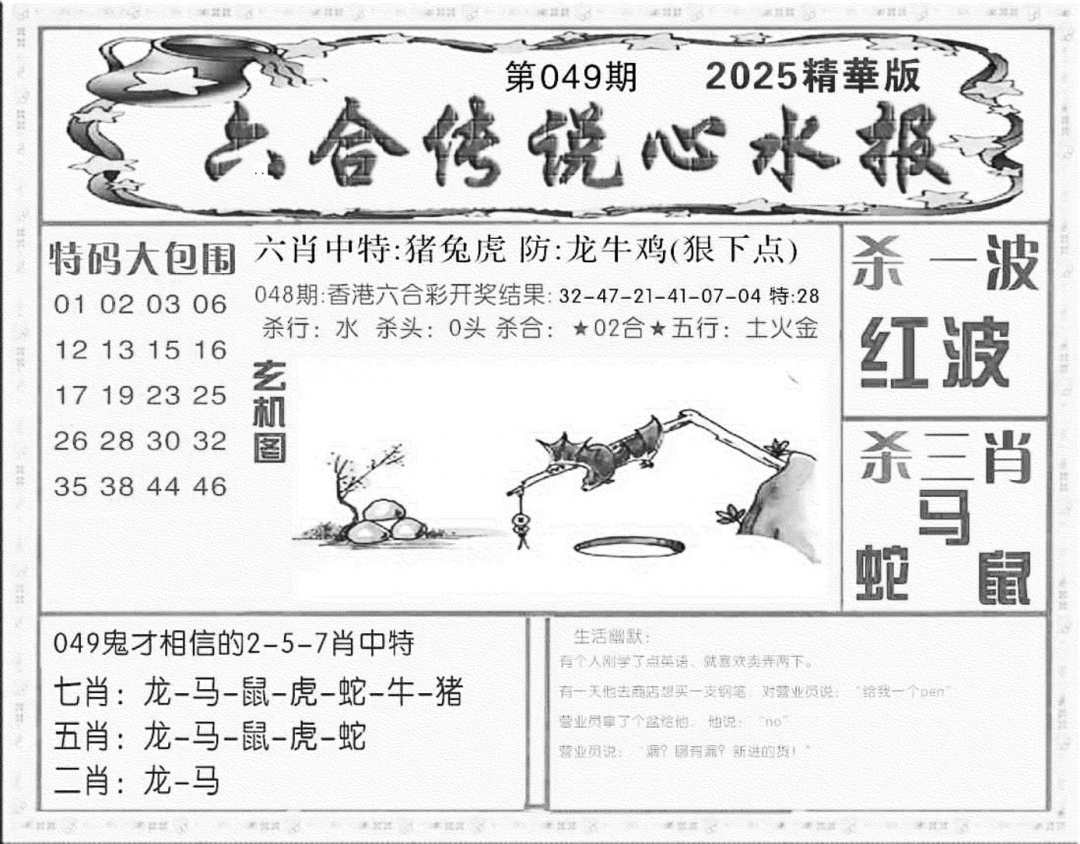 第049期 2025精華版
六合传说心水报
特码大包围
01 02 03 06
12 13 15 16
17 19 23 25
26 28 30 32
35 38 44 46
六肖中特:猪兔虎 防:龙牛鸡(狠下点)
048期:香港六合彩开奖结果: 32-47-21-41-07-04 特:28
杀行：水 杀头：0头 杀合：★02合★五行：土火金
玄机图
杀一波
红波
杀三肖
马
蛇 鼠
049鬼才相信的2-5-7肖中特
七肖：龙-马-鼠-虎-蛇-牛-猪
五肖：龙-马-鼠-虎-蛇
二肖：龙-马
生活幽默：
有个人刚学了点英语，就喜欢卖弄两下。
有一天他去商店想买一支钢笔，对营业员说：“给我一个pen”
营业员拿了个盆给他，他说：“no”
营业员说：“漏？圆有漏？新进的货！”